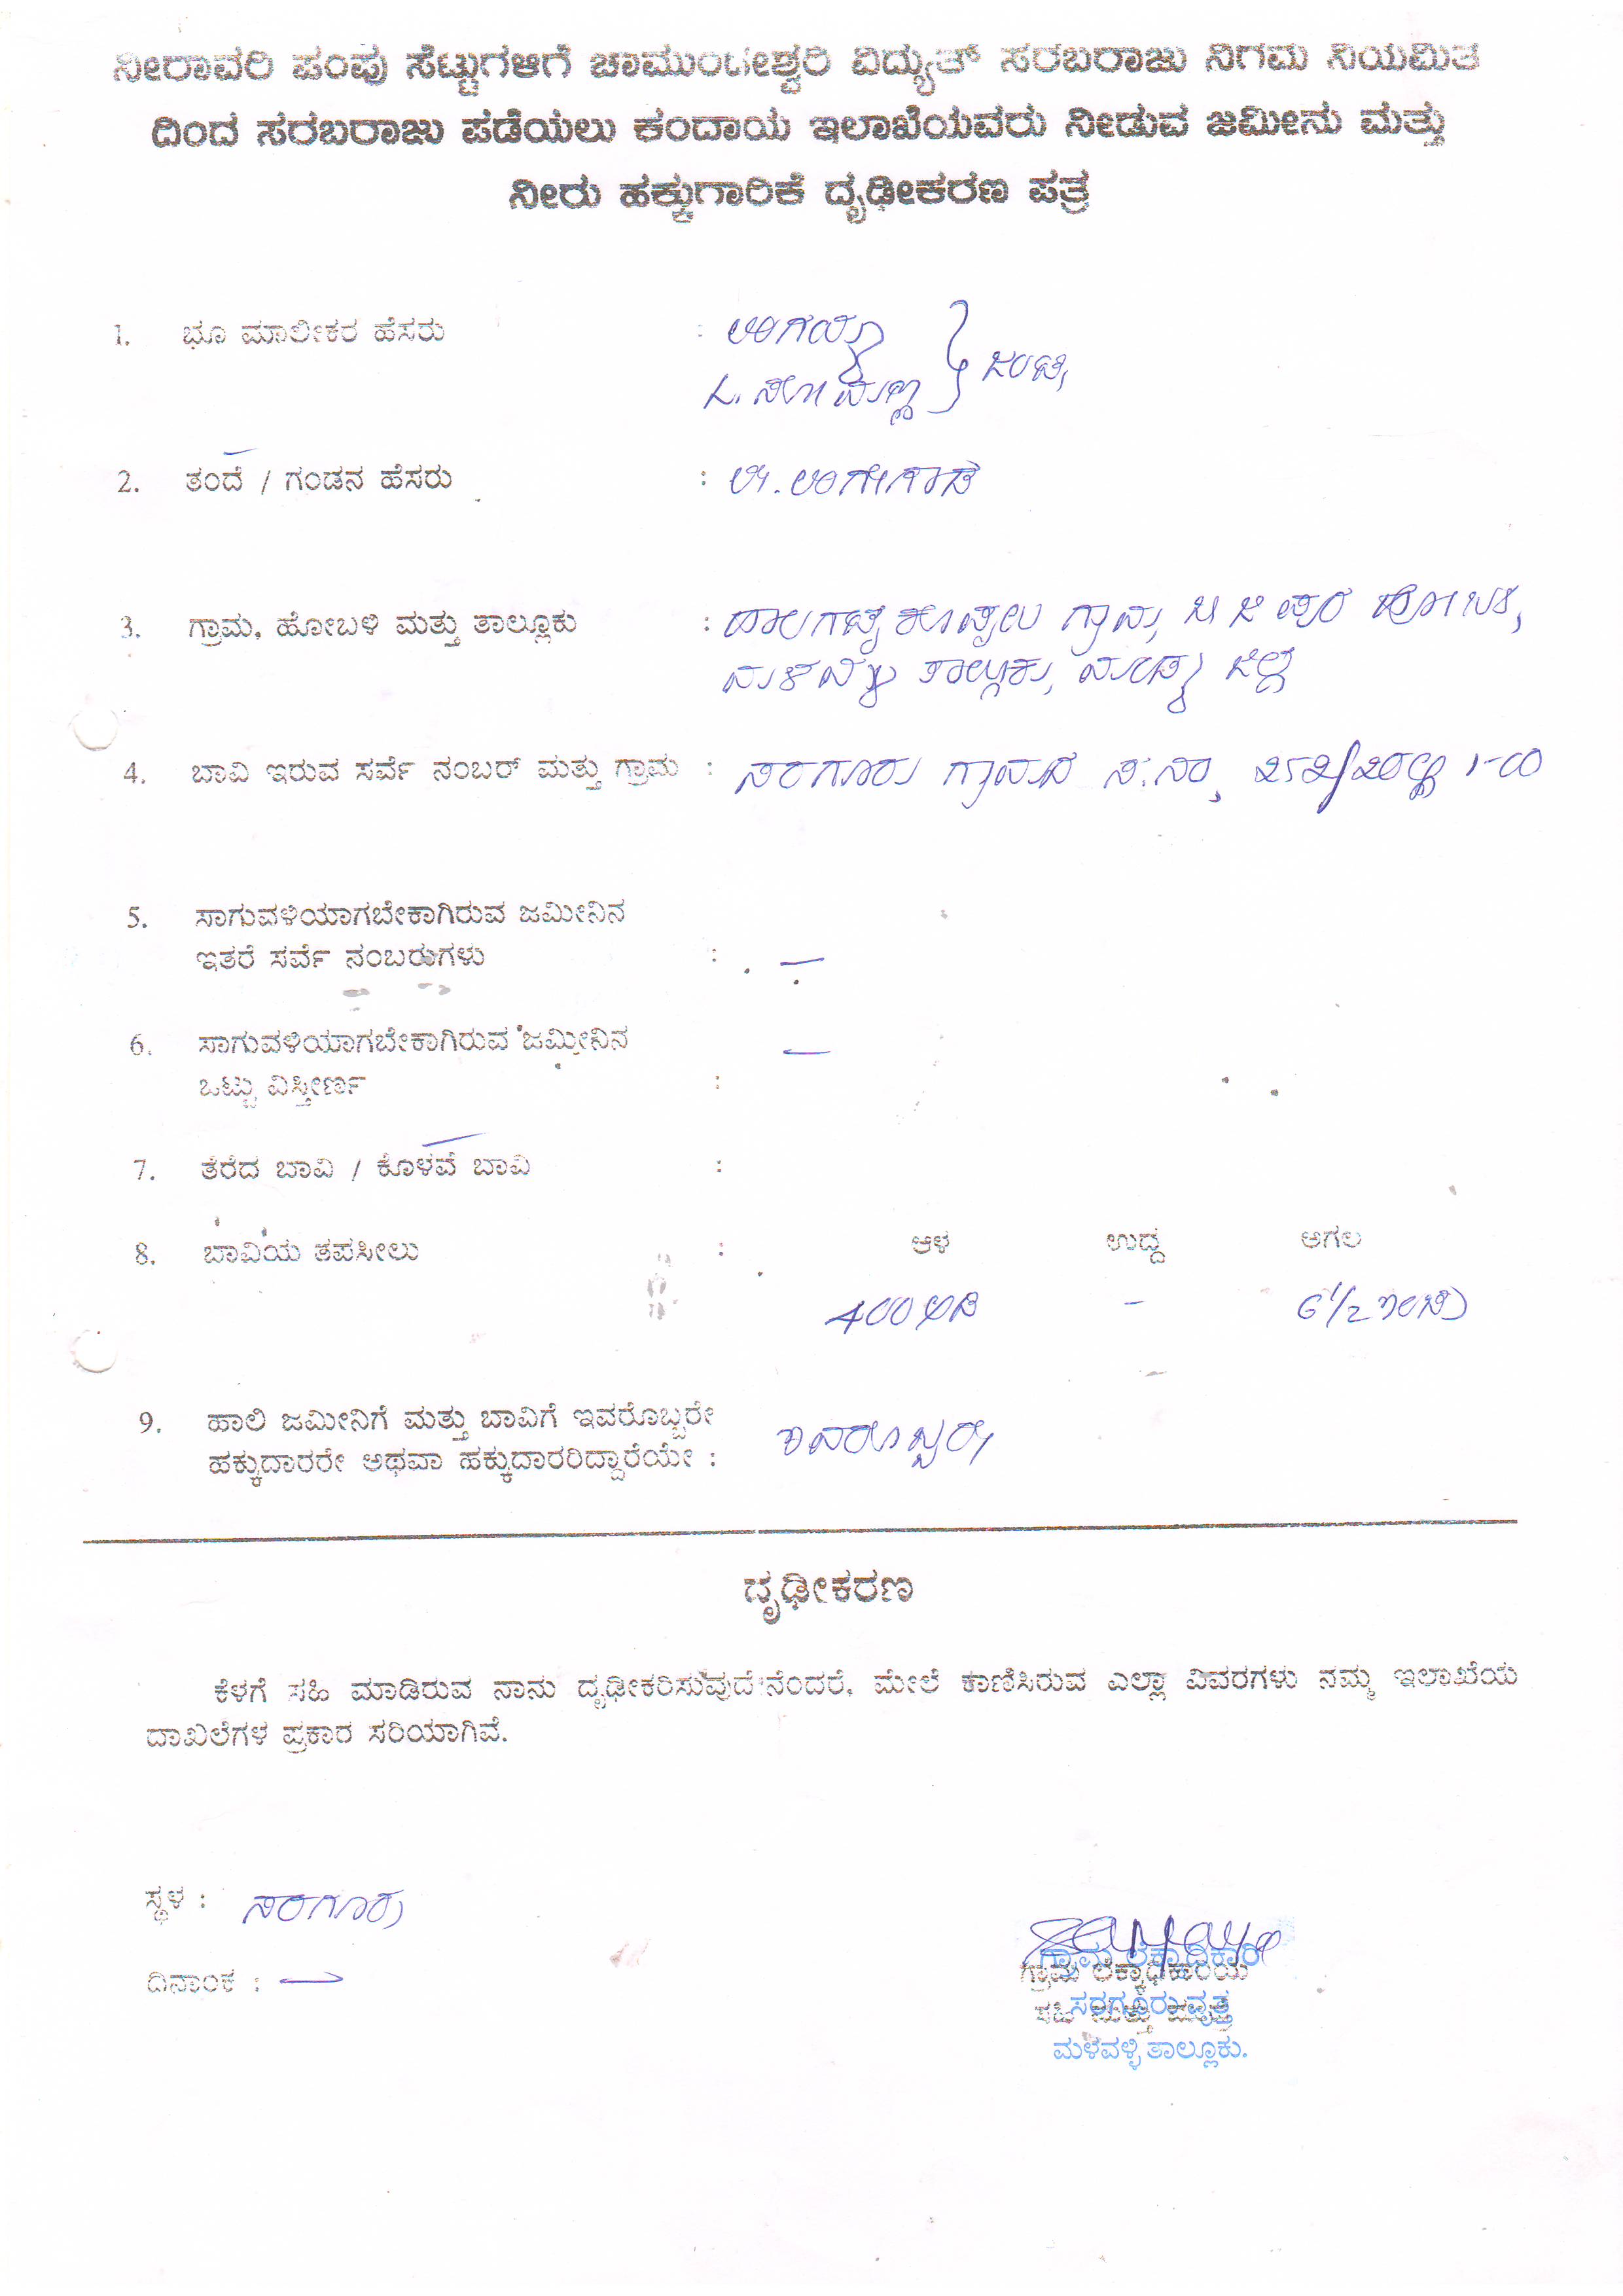 ನೀರಾವರಿ ಪಂಪು ಸೆಟ್ಟುಗಳಿಗೆ ಚಾಮುಂಡೇಶ್ವರಿ ವಿದ್ಯುತ್ ಸರಬರಾಜು ನಿಗಮ ನಿಯಮಿತ
ದಿಂದ ಸರಬರಾಜು ಪಡೆಯಲು ಕಂದಾಯ ಇಲಾಖೆಯವರು ನೀಡುವ ಜಮೀನು ಮತ್ತು
ನೀರು ಹಕ್ಕುಗಾರಿಕೆ ದೃಢೀಕರಣ ಪತ್ರ
1. ಭೂ ಮಾಲೀಕರ ಹೆಸರು : ಲಿಂಗಯ್ಯ
L. ಸೋಮಣ್ಣ ಜಂಟಿ
2. ತಂದೆ / ಗಂಡನ ಹೆಸರು : ಲೇ. ಲಿಂಗೇಗೌಡ
3. ಗ್ರಾಮ, ಹೋಬಳಿ ಮತ್ತು ತಾಲ್ಲೂಕು : ಗ್ರಾಮ, ಬಿ ಜಿ ಪುರ ಹೋಬಳಿ,
ಮಳವಳ್ಳಿ ತಾಲ್ಲೂಕು, ಮಂಡ್ಯ ಜಿಲ್ಲೆ
4. ಬಾವಿ ಇರುವ ಸರ್ವೆ ನಂಬರ್ ಮತ್ತು ಗ್ರಾಮ : ಸರಗೂರು ಗ್ರಾಮದ ಸ.ನಂ 252/ 1-00
5. ಸಾಗುವಳಿಯಾಗಬೇಕಾಗಿರುವ ಜಮೀನಿನ
ಇತರೆ ಸರ್ವೆ ನಂಬರುಗಳು : —
6. ಸಾಗುವಳಿಯಾಗಬೇಕಾಗಿರುವ ಜಮೀನಿನ —
ಒಟ್ಟು ವಿಸ್ತೀರ್ಣ :
7. ತೆರೆದ ಬಾವಿ / ಕೊಳವೆ ಬಾವಿ :
8. ಬಾವಿಯ ತಪಸೀಲು : ಆಳ ಉದ್ದ ಅಗಲ
400 ಅಡಿ - 6 1/2 ಇಂಚು
9. ಹಾಲಿ ಜಮೀನಿಗೆ ಮತ್ತು ಬಾವಿಗೆ ಇವರೊಬ್ಬರೇ
ಹಕ್ಕುದಾರರೇ ಅಥವಾ ಹಕ್ಕುದಾರರಿದ್ದಾರೆಯೇ : ಇವರೊಬ್ಬರೇ
ದೃಢೀಕರಣ
ಕೆಳಗೆ ಸಹಿ ಮಾಡಿರುವ ನಾನು ದೃಢೀಕರಿಸುವುದೇನೆಂದರೆ, ಮೇಲೆ ಕಾಣಿಸಿರುವ ಎಲ್ಲಾ ವಿವರಗಳು ನಮ್ಮ ಇಲಾಖೆಯ
ದಾಖಲೆಗಳ ಪ್ರಕಾರ ಸರಿಯಾಗಿವೆ.
ಸ್ಥಳ : ಸರಗೂರು
ದಿನಾಂಕ : —
ಗ್ರಾಮ ಲೆಕ್ಕಾಧಿಕಾರಿ
ಗ್ರಾಮ ಲೆಕ್ಕಾಧಿಕಾರಿಯ
ಸರಗೂರು ವೃತ್ತ
ಸಹಿ ಮತ್ತು ಮೊಹರು
ಮಳವಳ್ಳಿ ತಾಲ್ಲೂಕು.